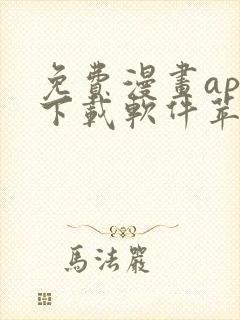 免費漫畫ap
下載軟件苹
馬法嚴